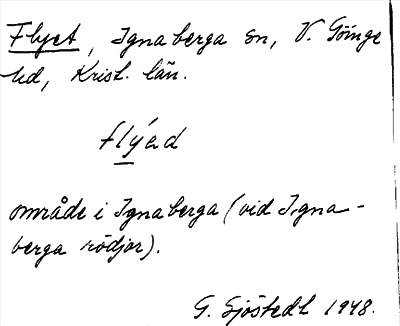 Flyet, Ignaberga sn, V. Göinge
hd, Krist. län.
flýed
område i Ignaberga (vid Igna-
berga rödjor).
G. Sjöstedt 1948.